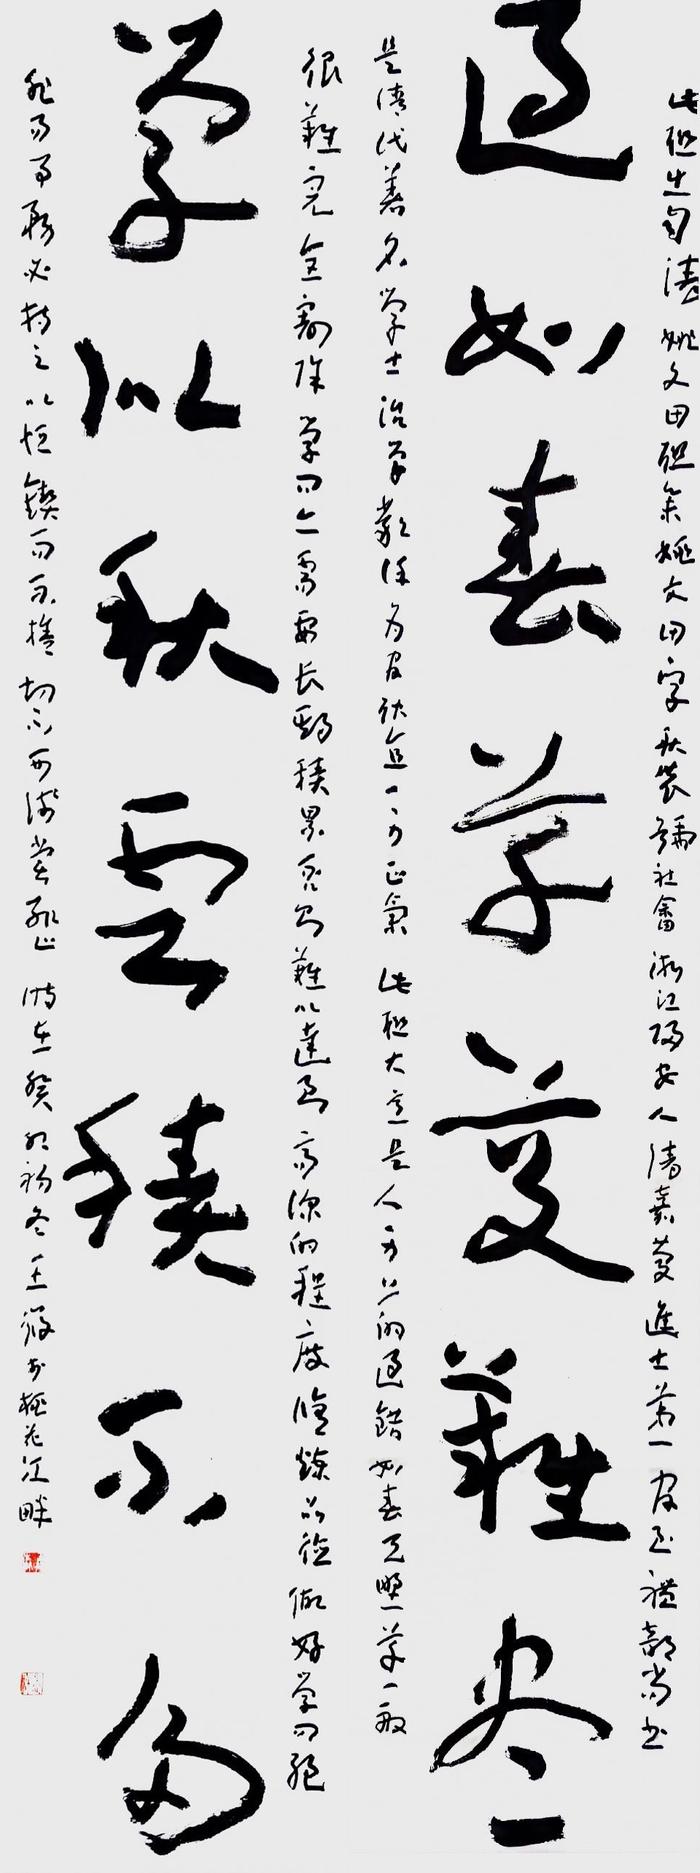 此聯出自清姚文田聯集姚文田字秋農號浙江歸安人清嘉慶進士第一官至禮部尚書
過如春草芟難盡
是清代著名學士治學嚴謹為官耿直一身正氣此聯大意是人身上的過錯如春天野草一般
很難完全割除學問亦需要長期積累否則難以達到高深的程度修煉品德做好學問絕
學似秋雲積不多
非易事務必持之以恒鍥而不捨切不可淺嘗輒止時在癸卯初冬王書於花江畔